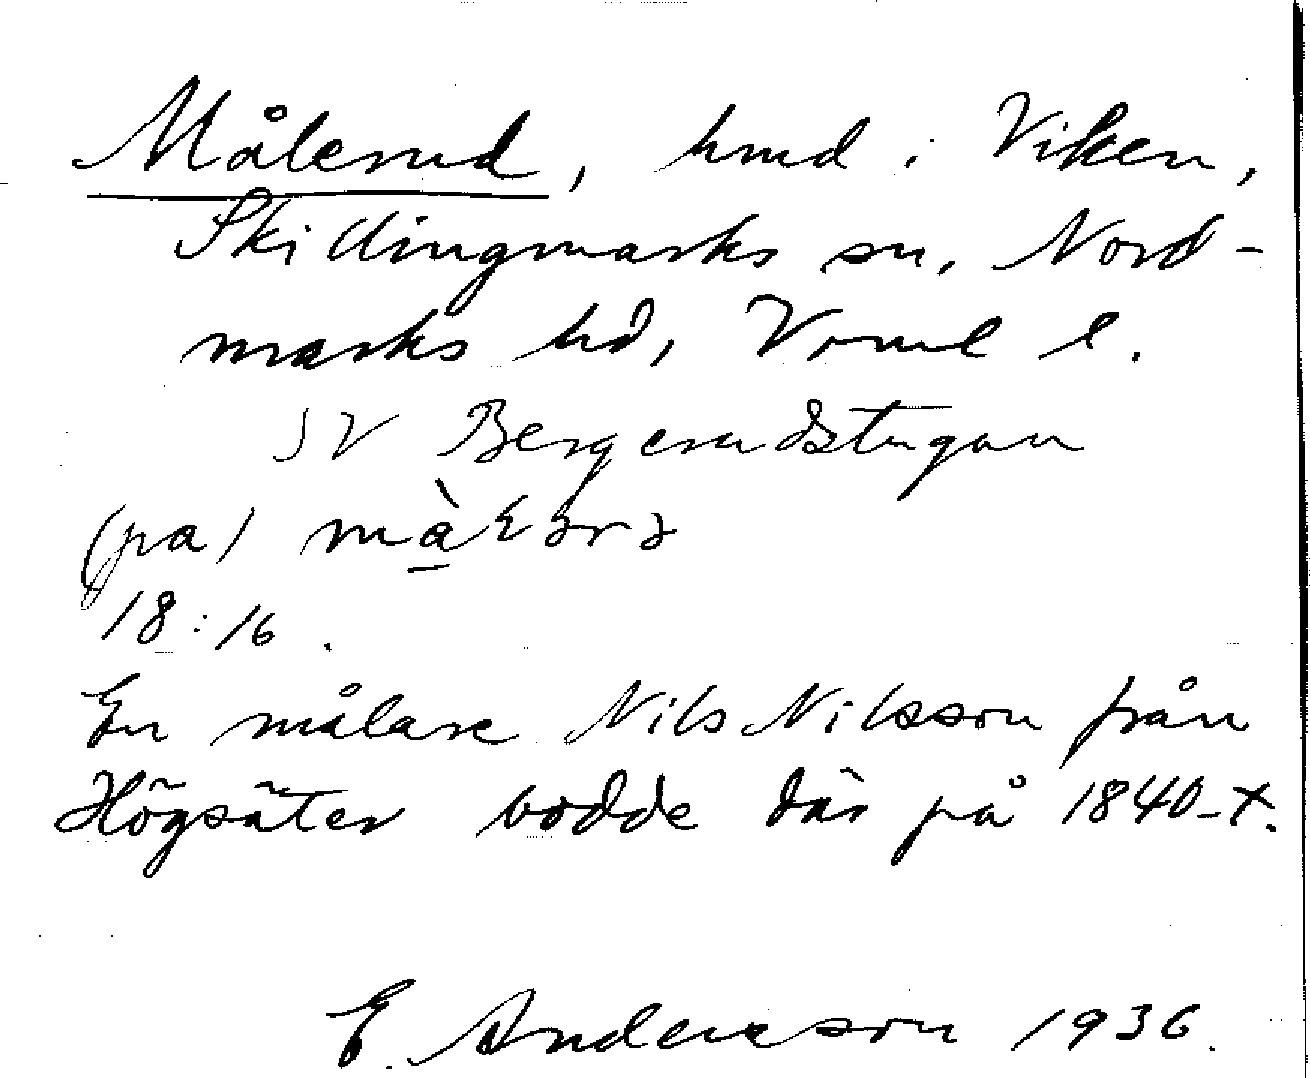 Målerud, hmd i Viken,
Skillingmarks sn, Nord-
marks hd, Vrml l.
SV Bergerudstugan
(pa)
18:16.
En målare Nils Nilsson från
Högsäter bodde där på 1840-t.
E. Andersson 1936.